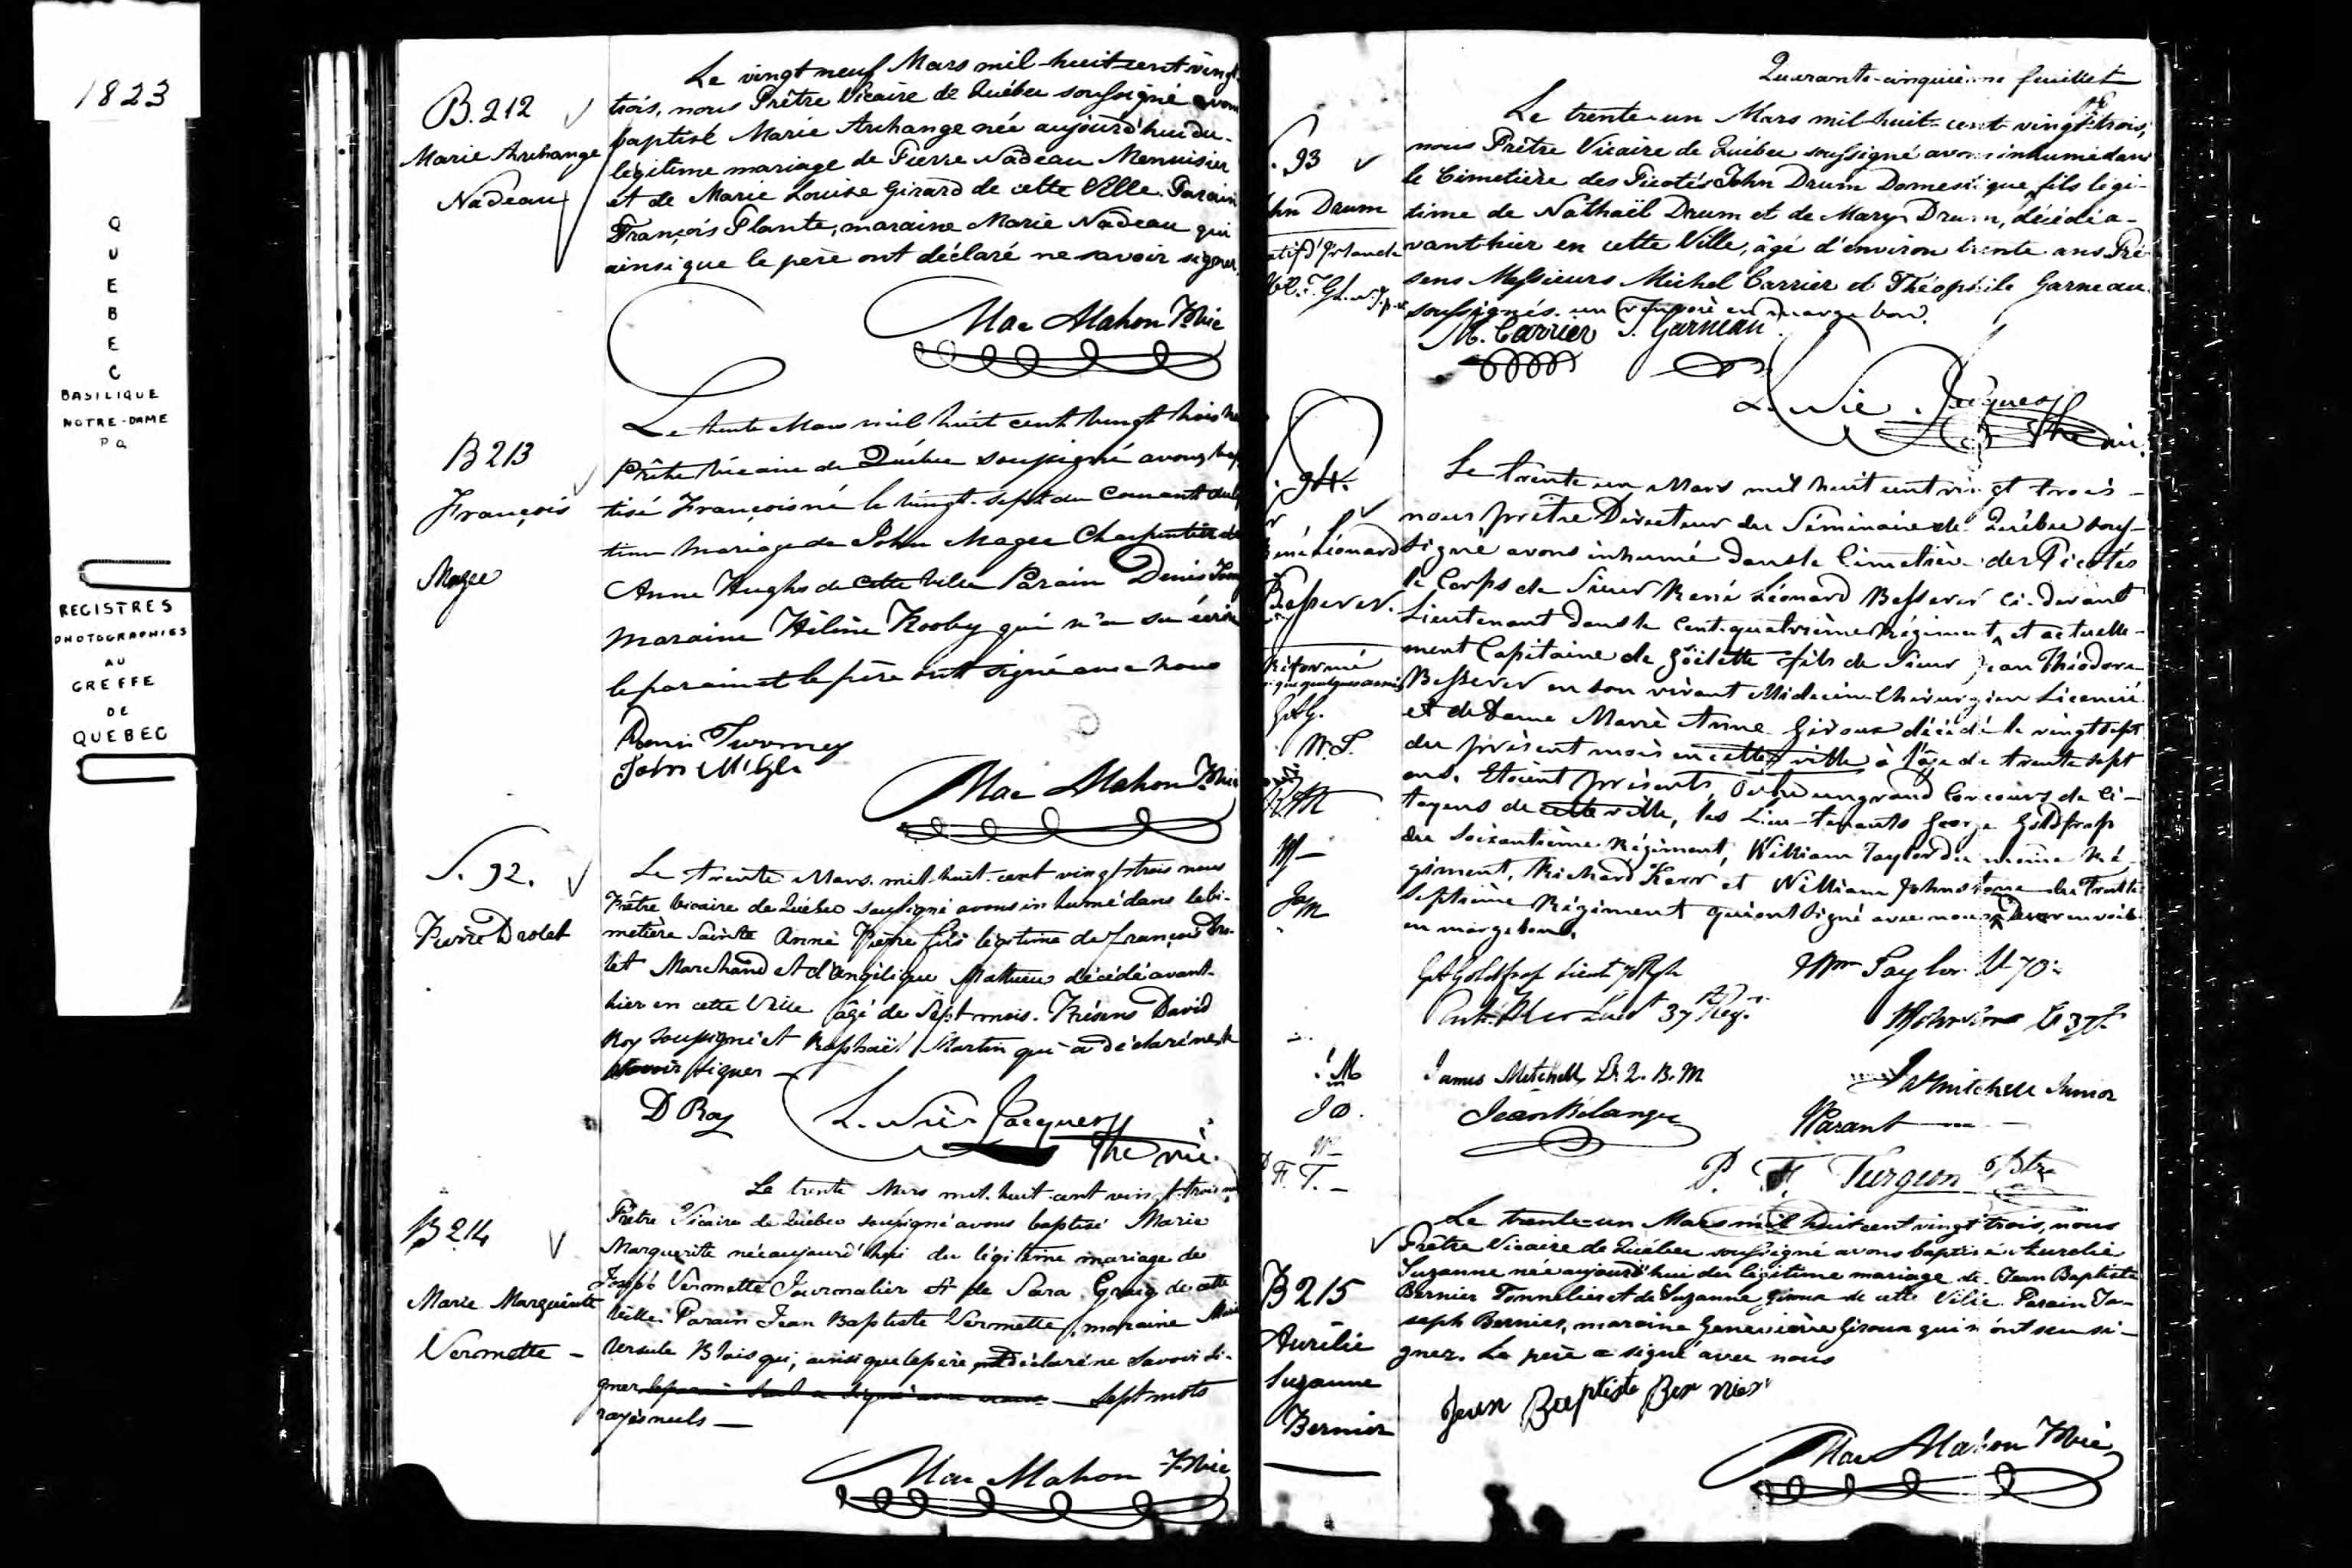 1823
Q
U
E
B
E
C
BASILIQUE
NOTRE-DAME
P Q
REGISTRES
PHOTOGRAPHIES
AU
GREFFE
DE
QUEBEC
B.212
Marie Archange
Nadeau
Le vingt neuf Mars mil-huit-cent-vingt
trois, nous Prêtre Vicaire de Québec soussigné avons
baptisé Marie Archange née aujourd'hui du
légitime mariage de Pierre Nadeau Menuisier
et de Marie Louise Girard de cette Ville. Parain
François Plante, maraine Marie Nadeau qui
ainsi que le père ont déclaré ne savoir signer.
Mac Mahon Ptre Vic
B 213
François
Magee
Le trente Mars mil huit cent vingt trois
Prêtre Vicaire de Québec soussigné avons bap
tisé François né le vingt-sept du courant du
time mariage de John Magee Charpentier
Anne Hughs de cette ville Parain Denis
maraine Hélène Rooby qui n'a su écrire
le parain et le père ont signé avec nous
Denis Twomey
John
Mac Mahon Ptre Vic
S. 92.
Pierre Drolet
Le trente Mars mil-huit-cent vingt-trois nous
Prêtre Vicaire de Québec soussigné avons inhumé dans le Ci-
metière Sainte Anne Pierre fils légitime de françois Dro-
let Marchand et d'angélique Mathieu décédé avant-
hier en cette Ville âgé de Sept mois. Présens David
Roy soussigné et Raphaël Martin qui a déclaré ne
savoir signer
D Roy L. Vié Jacques
Ptre Vic.
B 214
Marie Marguerite
Vermette
Le trente Mars mil huit cent vingt-trois
Prêtre Vicaire de Québec soussigné avons baptisé Marie
Marguerite née aujourd'hui du légitime mariage de
Joseph Vermette Journalier et de Sara Greig de cette
Ville. Parain Jean Baptiste Vermette, maraine
Ursule Blais qui, ainsi que le père ont déclaré ne savoir si-
gner Sept mots
rayés nuls
Mac Mahon Ptre Vic
Quarante-cinquième feuillet
. 93
hn Drum
atif d'Irlande
Le trente-un Mars mil-huit-cent vingt-trois,
nous Prêtre Vicaire de Québec soussigné avons inhumé dans
le Cimetière des Picotés John Drum Domestique fils légi-
time de Nathaël Drum et de Mary Drum, décédé a-
vant-hier en cette Ville, âgé d'environ trente ans. Pré-
sens Messieurs Michel Carrier et Théophile Garneau
soussignés. un renvoi en marge bon.
M. Carrier T. Garneau
L. Vié Jacques
Ptre Vic.
. 94.
René Léonard
Besserer.
Réformé
Le trente un Mars mil huit cent vingt trois
nous prêtre Directeur du Séminaire de Québec sous-
signé avons inhumé dans le Cimetière des Picotés
le Corps de Sieur René Léonard Besserer ci-devant
Lieutenant dans le cent-quatrième Régiment, et actuelle-
ment Capitaine de Goëlette fils de Sieur Jean Théodore
Besserer en son vivant Médecin Chirurgien Licencié
et de Dame Marie Anne Giroux décédé le vingt sept
du présent mois en cette ville à l'âge de trente sept
ans. Etoient présents, outre un grand Concours de Ci-
toyens de cette ville, les Lieu-tenants George Goldfrap
du Soixantième Régiment, William Taylor du même Ré-
giment, Richard Kerr et William Johnstone du Trente
septième Régiment qui ont signé avec nous Deux renvois
en marge bons.
G.A.
W.T.
J M
J B.
F. T.
GA Goldfrap Lieut 70 Rgt
Wm Taylor Lt 70
Lieut 37 Reg.
WJohnstone Lt 37
James Mitchell Lt. 2. B. M
JAMitchell Junior
Jean Bélanger
Parant
P. F. Turgeon Ptre
B 215
Aurélie
Suzanne
Bernier
Le trente-un Mars mil huit cent vingt trois, nous
Prêtre Vicaire de Québec soussigné avons baptisé Aurelie
Suzanne née aujourd'hui du légitime mariage de Jean Baptiste
Bernier Tonnelier et de Suzanne Giroux de cette Ville. Parain Jo-
seph Bernier, maraine Geneviève Giroux qui n'ont su si-
gner. Le père a signé avec nous
Jean Baptiste Bernier
Mac Mahon Ptre Vic